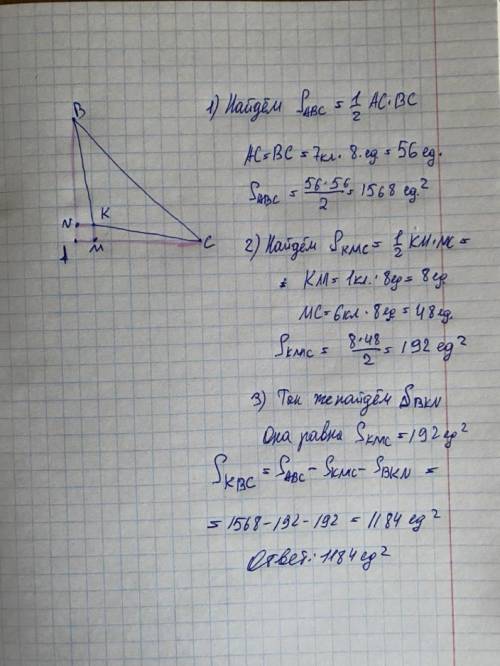 1) Найдём S_ABC = 1/2 AC·BC
AC=BC=7кл·8·ед=56ед.
S_ABC = 56·56/2 = 1568 ед²
2) Найдём S_KMC = 1/2 KM·MC =
= KM=1кл·8ед=8ед
MC=6кл·8ед=48ед.
S_KMC = 8·48/2 = 192 ед²
3) Так же найдём S_BKN
Она равна S_KMC=192ед²
S_KBC = S_ABC - S_KMC - S_BKN =
= 1568-192-192 = 1184 ед²
Ответ: 1184 ед²
B
N K
A M C